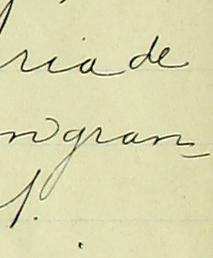 ria de
ngran-
1.